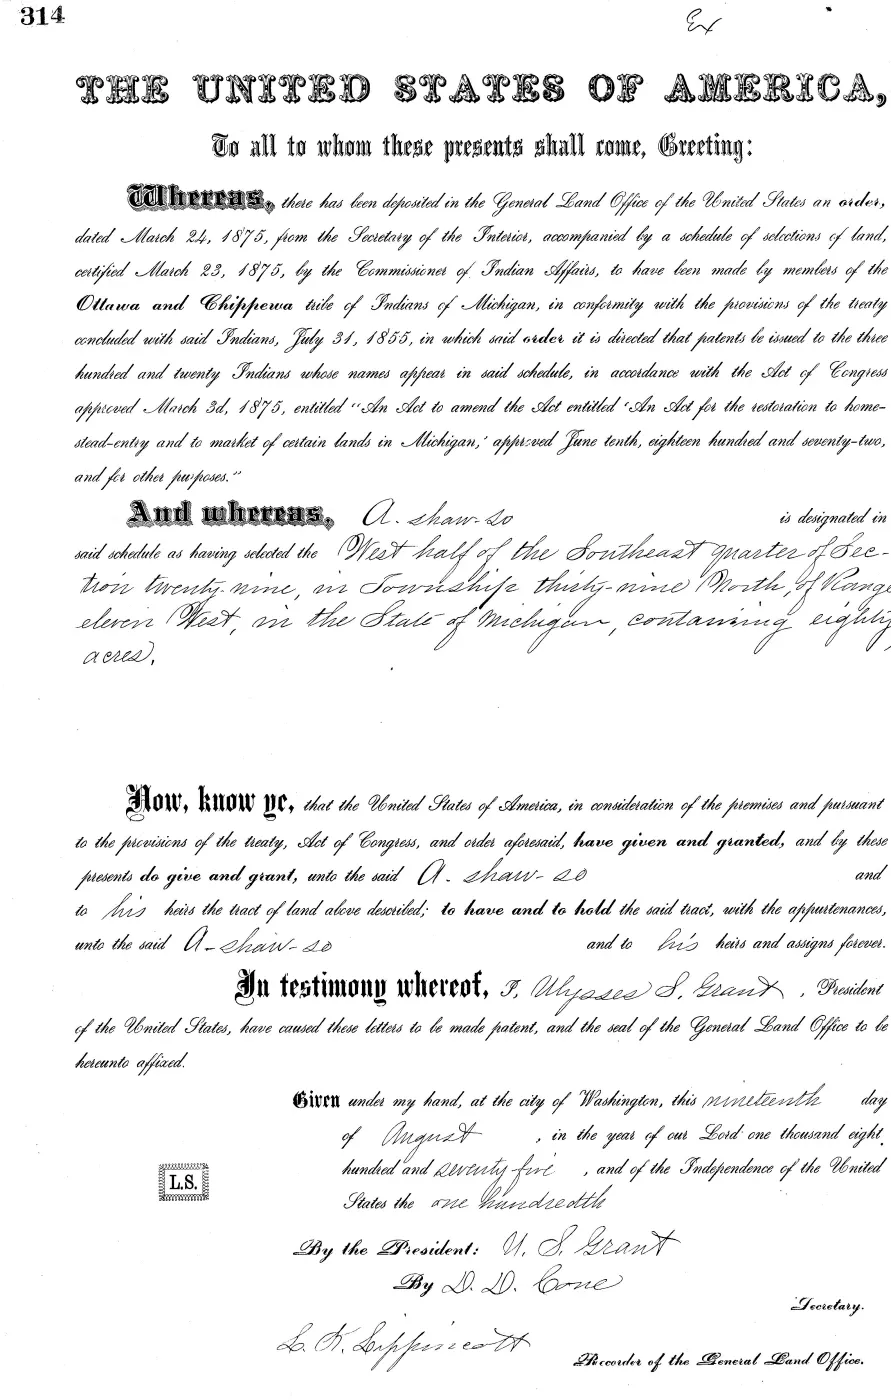 314
Ex
THE UNITED STATES OF AMERICA,
To all to whom these presents shall come, Greeting:
Whereas, there has been deposited in the General Land Office of the United States an order,
dated March 24, 1875, from the Secretary of the Interior, accompanied by a schedule of selections of land,
certified March 23, 1875, by the Commissioner of Indian Affairs, to have been made by members of the
Ottawa and Chippewa tribe of Indians of Michigan, in conformity with the provisions of the treaty
concluded with said Indians, July 31, 1855, in which said order it is directed that patents be issued to the three
hundred and twenty Indians whose names appear in said schedule, in accordance with the Act of Congress
approved March 3d, 1875, entitled "An Act to amend the Act entitled 'An Act for the restoration to home-
stead-entry and to market of certain lands in Michigan,' approved June tenth, eighteen hundred and seventy-two,
and for other purposes."
And whereas, A-shaw-so is designated in
said schedule as having selected the West half of the Southeast quarter of Sec-
tion twenty-nine, in Township thirty-nine North, of Range
eleven West, in the State of Michigan, containing eighty
acres.
Now, know ye, that the United States of America, in consideration of the premises and pursuant
to the provisions of the treaty, Act of Congress, and order aforesaid, have given and granted, and by these
presents do give and grant, unto the said A-shaw-so and
to his heirs the tract of land above described; to have and to hold the said tract, with the appurtenances,
unto the said A-shaw-so and to his heirs and assigns forever.
In testimony whereof, I, Ulysses S. Grant, President
of the United States, have caused these letters to be made patent, and the seal of the General Land Office to be
hereunto affixed.
Given under my hand, at the city of Washington, this nineteenth day
of August, in the year of our Lord one thousand eight
hundred and seventy five, and of the Independence of the United
L.S.
States the one hundredth
By the President: U. S. Grant
By D. D. Cone
Secretary.
L. K. Lippincott
Recorder of the General Land Office.